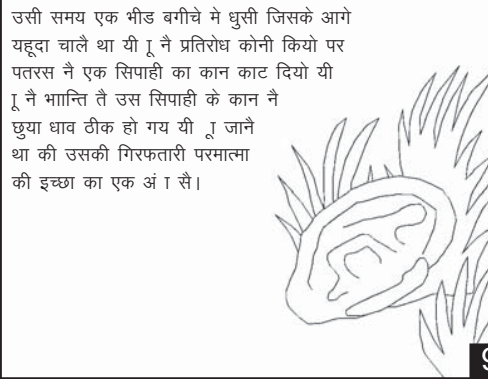 उसी समय एक भीड बगीचे मे धुसी जिसके आगे
यहूदा चालै था यी ु नै प्रतिरोध कोनी कियो पर
पतरस नै एक सिपाही का कान काट दियो यी
ु नै भाान्ति तै उस सिपाही के कान नै
छुया धाव ठीक हो गय यी ु जानै
था की उसकी गिरफतारी परमात्मा
की इच्छा का एक अं ा सै।
9